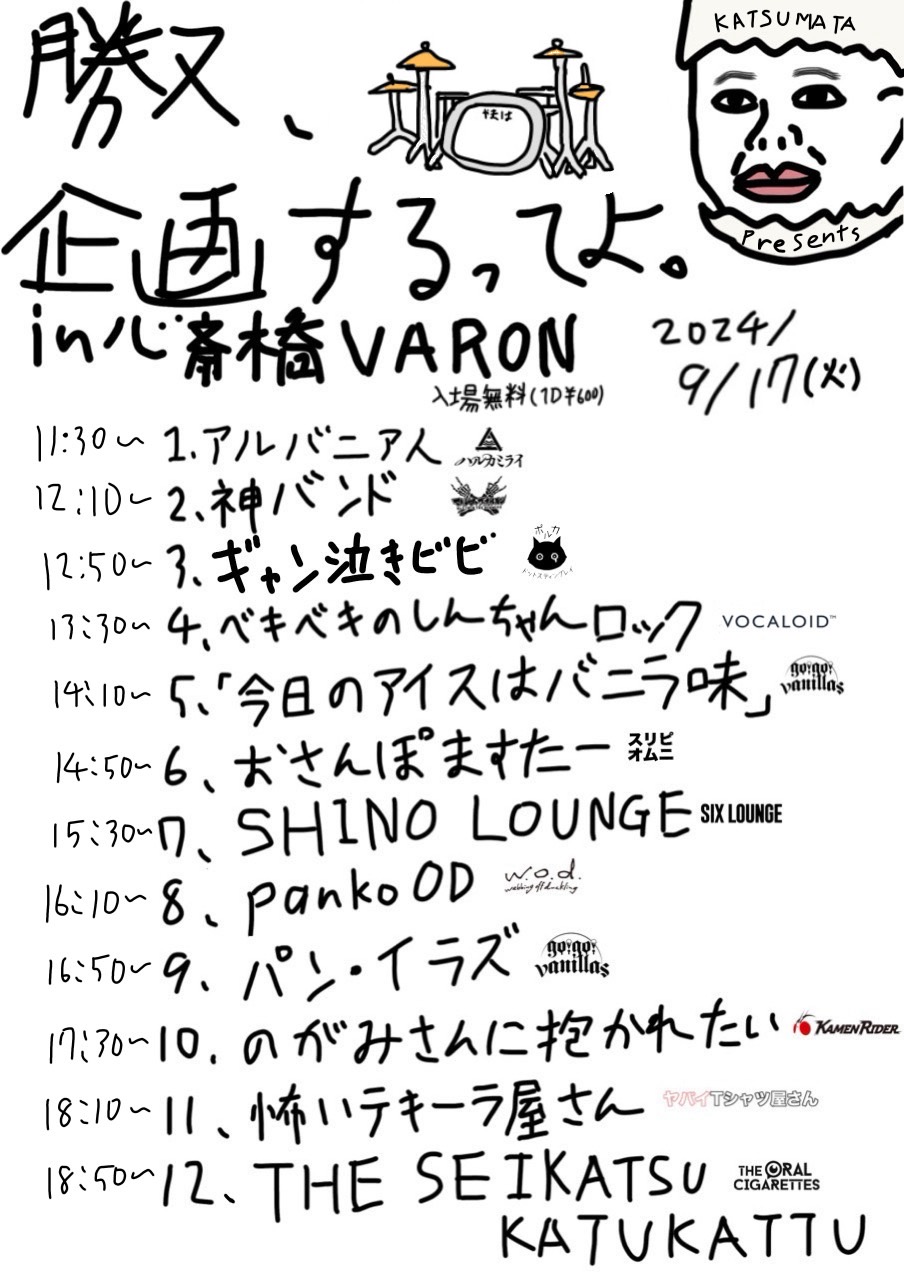 KATSUMATA
勝又、
企画するってよ。
Presents
in 心斎橋 VARON
2024/
9/17(火)
入場無料(1D¥600)
11:30～ 1.アルバニア人 ハルカミライ
12:10～ 2、神バンド
12:50～ 3、ギャン泣きビビ ポルカドットスティングレイ
13:30～ 4、ベキベキのしんちゃんロック VOCALOID™
14:10～ 5、「今日のアイスはバニラ味」 go!go!vanillas
14:50～ 6、おさんぽますたー スリピオムニ
15:30～ 7、SHINO LOUNGE SIX LOUNGE
16:10～ 8、panko OD w.o.d.
16:50～ 9、パン・イラズ go!go!vanillas
17:30～ 10.のがみさんに抱かれたい KAMEN RIDER
18:10～ 11、怖いテキーラ屋さん ヤバイTシャツ屋さん
18:50～ 12、THE SEIKATSU THE ORAL CIGARETTES
KATUKATTU